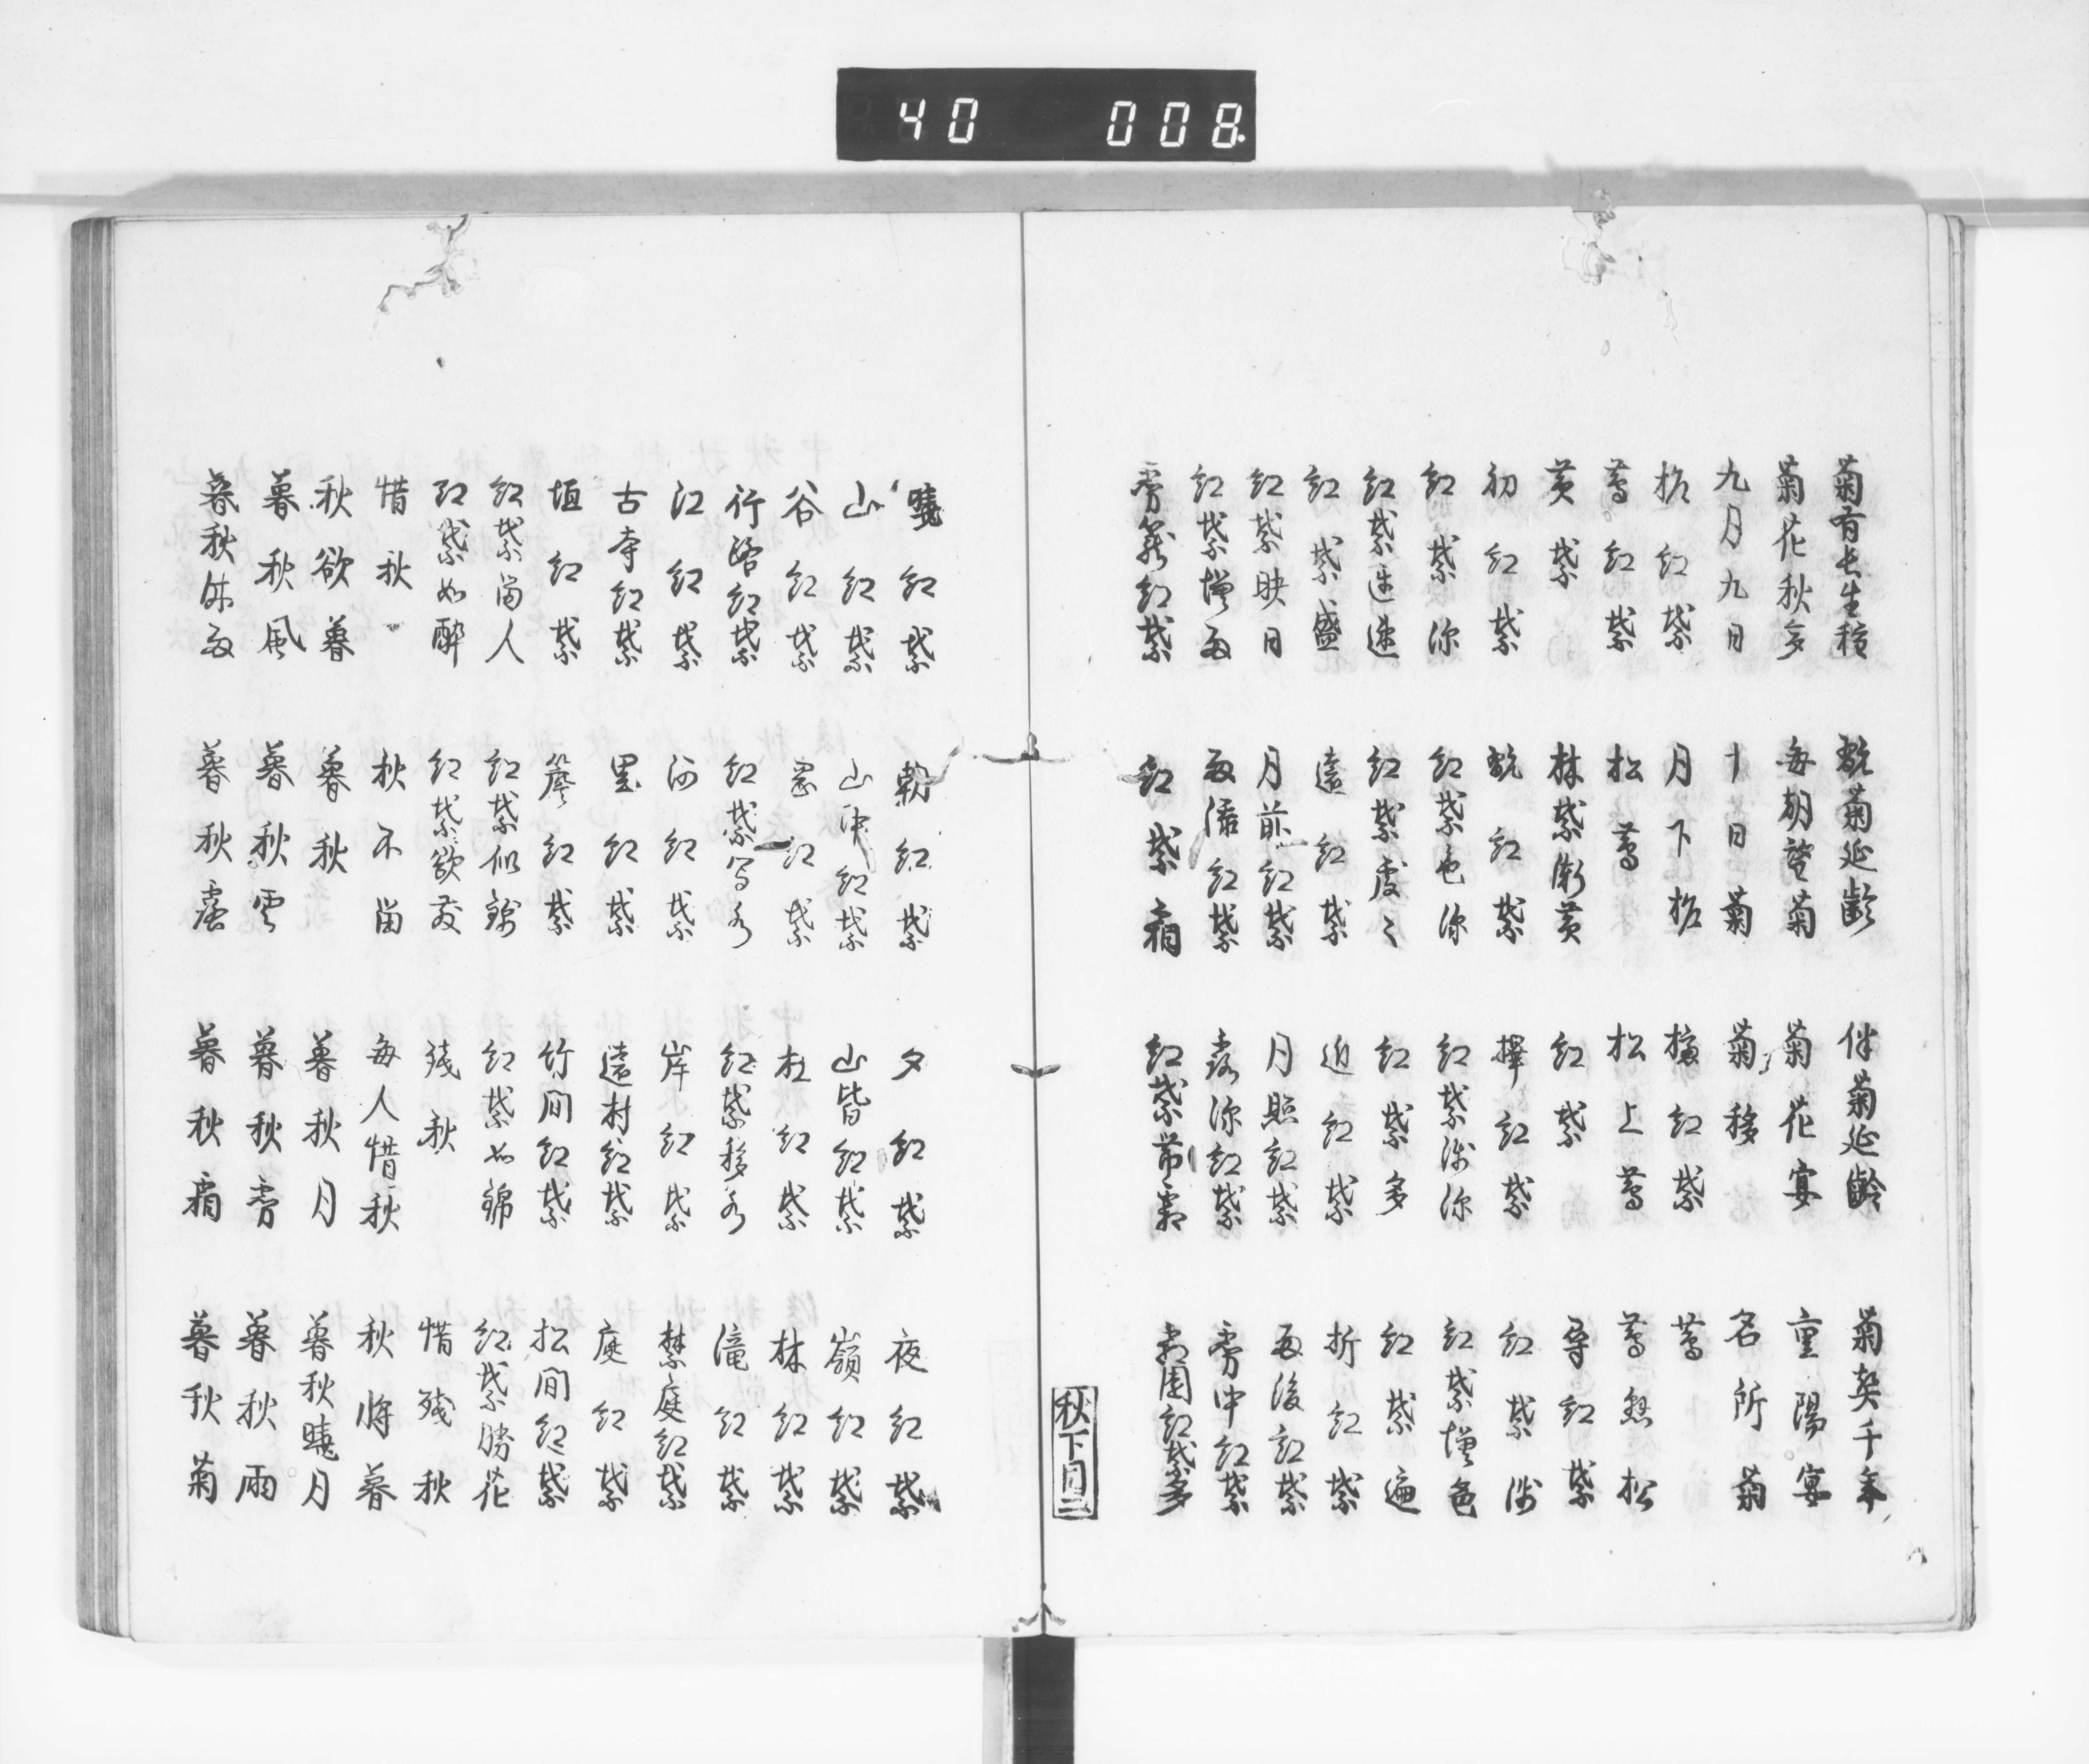 菊有長生種 翫菊延齢 伴菊延齢 菊契千年
菊花秋多 毎朝望菊 菊花宴 重陽宴
九月九日 十日菊 菊移 名所菊
柞紅葉 月下柞 紅葉 蔦
蔦紅葉 松蔦 松上蔦 蔦懸松
黄葉 林葉漸黄 紅葉 尋紅葉
初紅葉 翫紅葉 擇紅葉 紅葉浅
紅葉深 紅葉色深 紅葉浅深 紅葉増色
紅葉遅速 紅葉處々 紅葉多 紅葉遍
紅葉盛 遠紅葉 近紅葉 折紅葉
紅葉映日 月前紅葉 月照紅葉 雨後紅葉
紅葉増雨 雨添紅葉 露深紅葉 霧中紅葉
霧籠紅葉 紅葉霜 紅葉帯霜 園紅葉多
秋下目二
暁紅葉 朝紅葉 夕紅葉 夜紅葉
山紅葉 山中紅葉 山皆紅葉 嶺紅葉
谷紅葉 岡紅葉 杜紅葉 林紅葉
行路紅葉 紅葉写水 紅葉移水 滝紅葉
江紅葉 河紅葉 岸紅葉 禁庭紅葉
古寺紅葉 里紅葉 遠村紅葉 庭紅葉
垣紅葉 簷紅葉 竹間紅葉 松間紅葉
紅葉留人 紅葉似錦 紅葉如錦 紅葉勝花
紅葉如酔 紅葉欲散 残秋 惜残秋
惜秋 秋不留 毎人惜秋 秋将暮
秋欲暮 暮秋 暮秋月 暮秋暁月
暮秋風 暮秋雲 暮秋霧 暮秋雨
暮秋雨 暮秋露 暮秋霜 暮秋菊
40 008